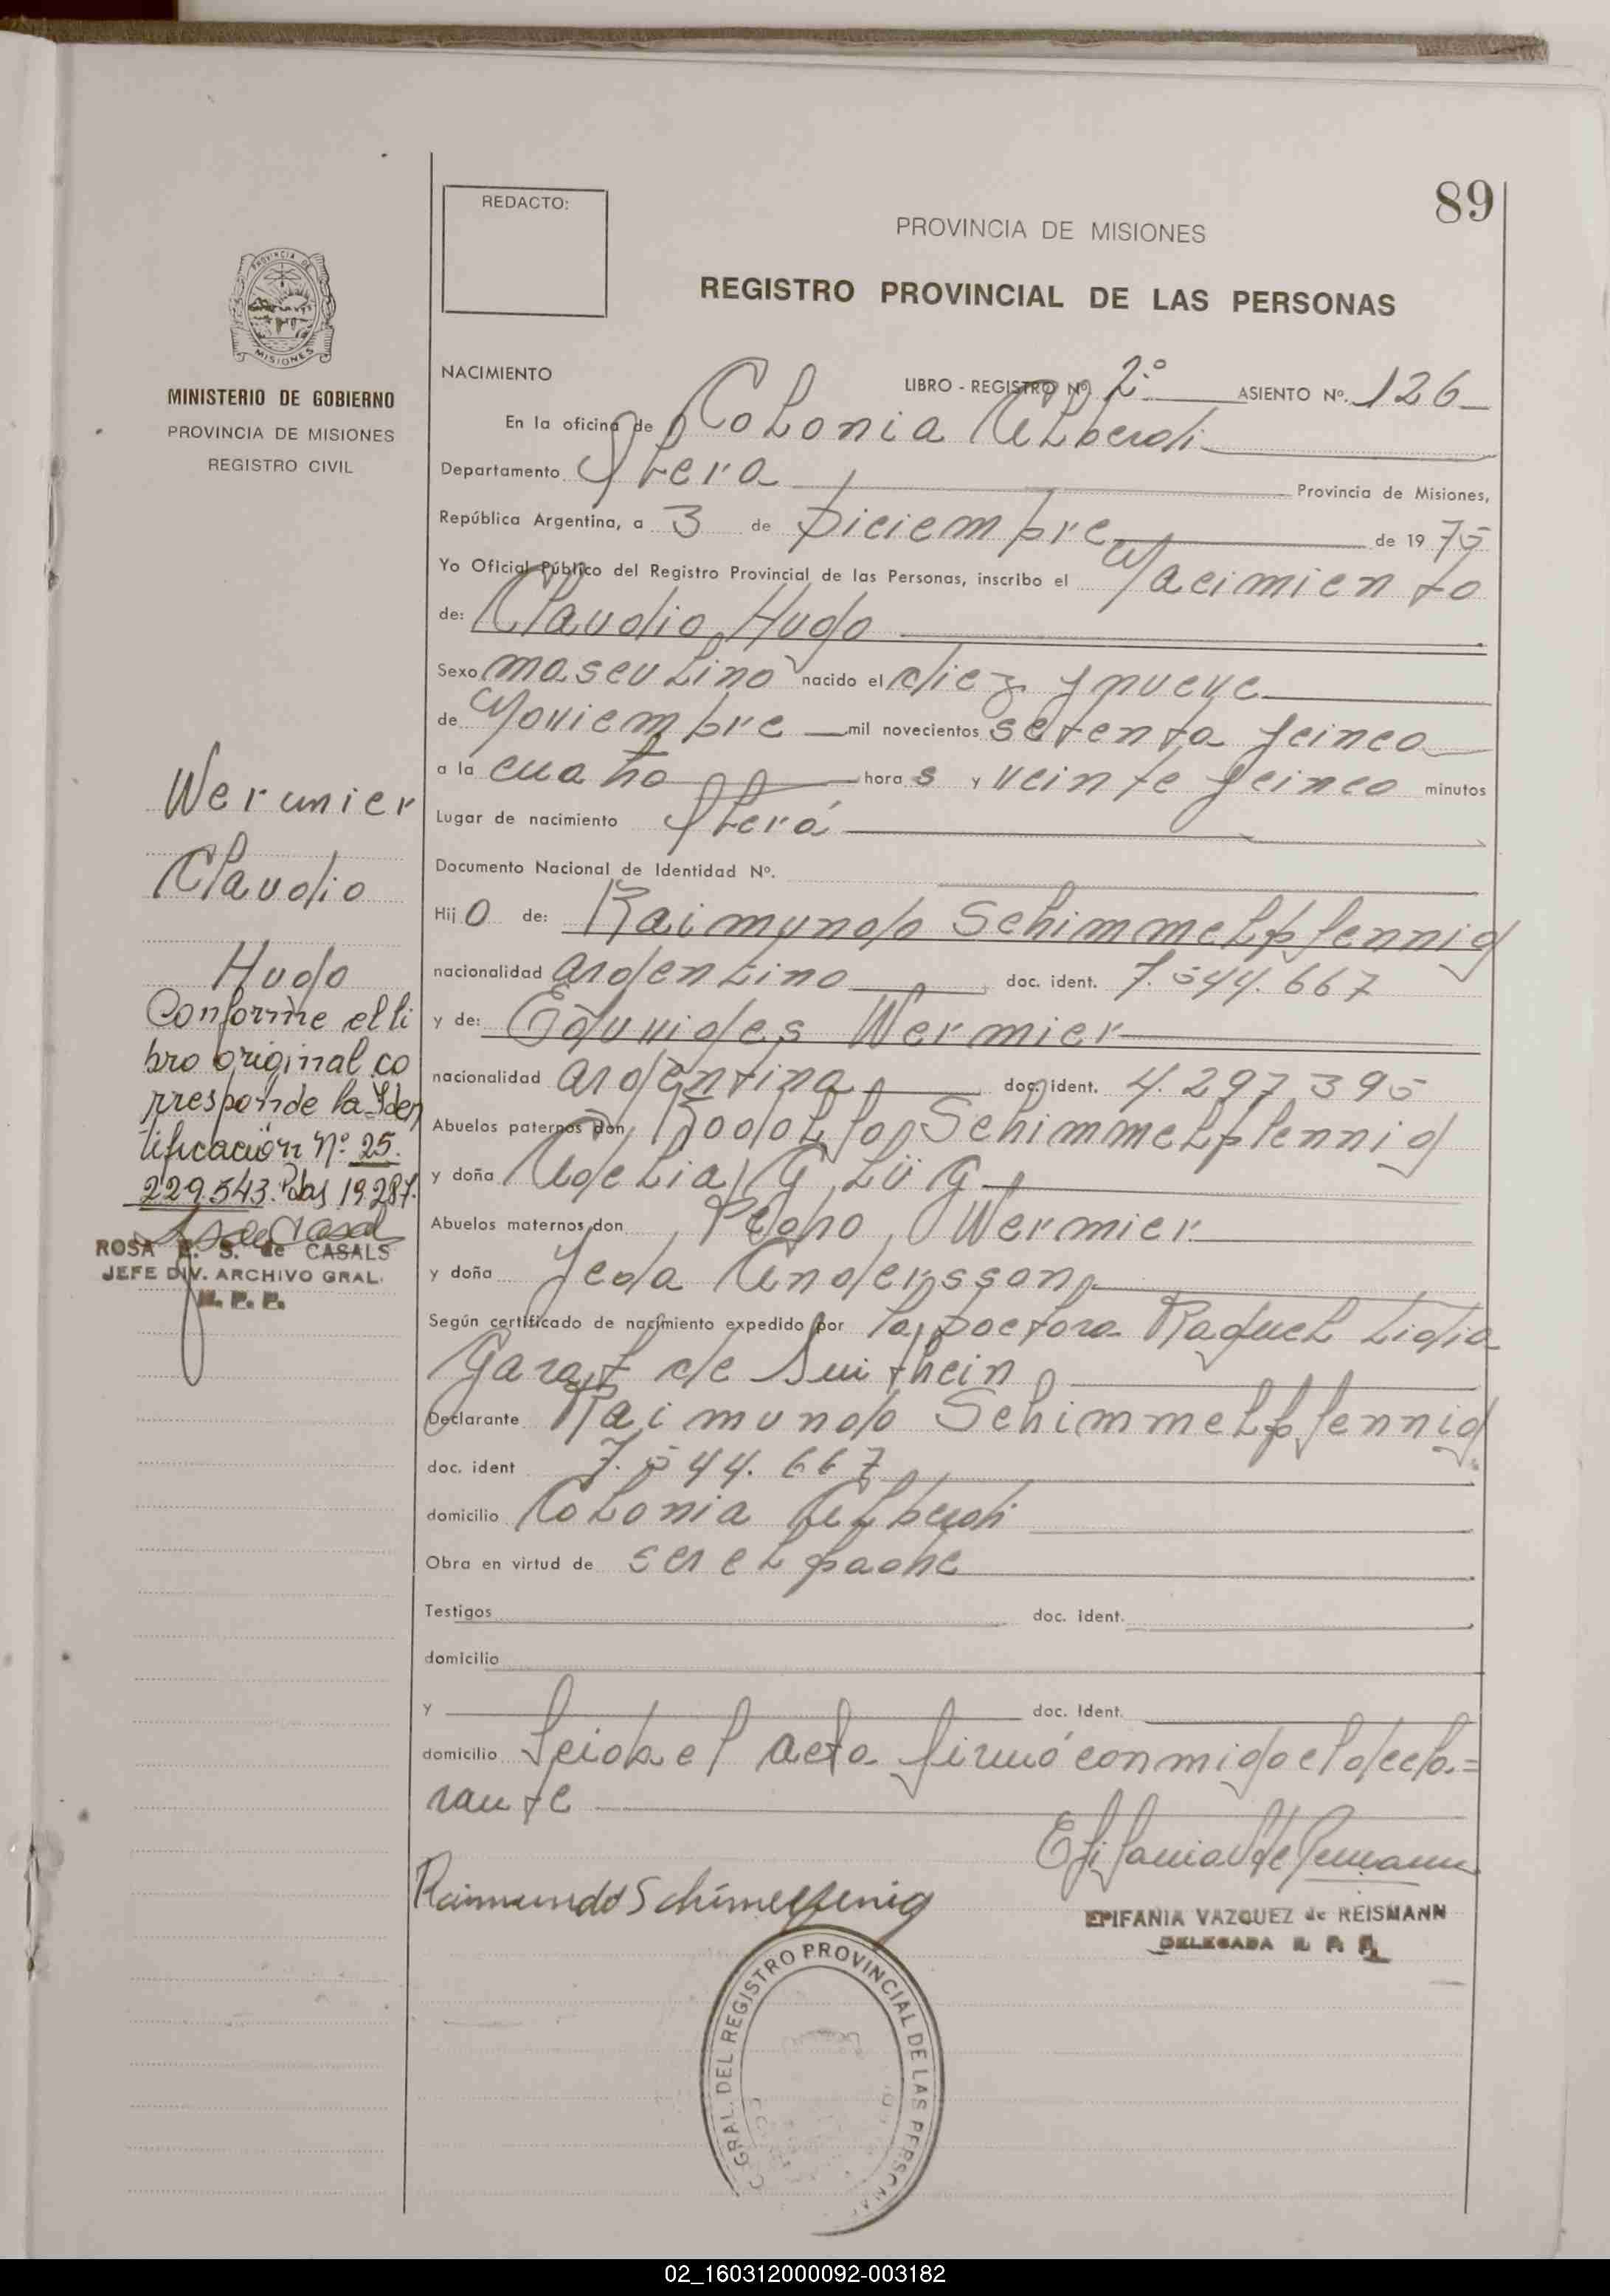 89
REDACTO:
PROVINCIA DE MISIONES
REGISTRO PROVINCIAL DE LAS PERSONAS
MINISTERIO DE GOBIERNO
PROVINCIA DE MISIONES
REGISTRO CIVIL
NACIMIENTO LIBRO - REGISTRO Nº. 2º ASIENTO Nº. 126
En la oficina de Colonia Alberdi
Departamento Oberá Provincia de Misiones,
República Argentina, a 3 de Diciembre de 1975
Yo Oficial Público del Registro Provincial de las Personas, inscribo el Nacimiento
de: Claudio Hugo
Sexo masculino nacido el diez y nueve
de Noviembre mil novecientos setenta y cinco
a la cuatro hora s y veinte y cinco minutos
Lugar de nacimiento Oberá
Documento Nacional de Identidad Nº.
Hij o de: Raimundo Schimmelpfennig
nacionalidad argentino doc. ident. 7.544.667
y de: Eduvides Wermier
nacionalidad argentina doc. ident. 4.297395
Abuelos paternos don Rodolfo Schimmelpfennig
y doña Adelia Glüg
Abuelos maternos don Pedro Wermier
y doña Andersson
Según certificado de nacimiento expedido por la Doctora Raquel Lidia
Garat de
Declarante Raimundo Schimmelpfennig
doc. ident 7.544.667
domicilio Colonia Alberdi
Obra en virtud de ser el padre
Testigos doc. Ident.
domicilio
y doc. Ident.
domicilio Leida el acta firmó conmigo el decla=
rante
Raimundo Schimelfenig
EPIFANIA VAZQUEZ de REISMANN
DELEGADA R. P. P.
C. GRAL. DEL REGISTRO PROVINCIAL DE LAS PERSONAS
Wermier
Claudio
Hugo
Conforme el li
bro original co
rresponde la Iden
tificación Nº 25.
229.543. Pdas 19.2.87.
ROSA E. S. de CASALS
JEFE DIV. ARCHIVO GRAL.
R. P. P.
02_160312000092-003182